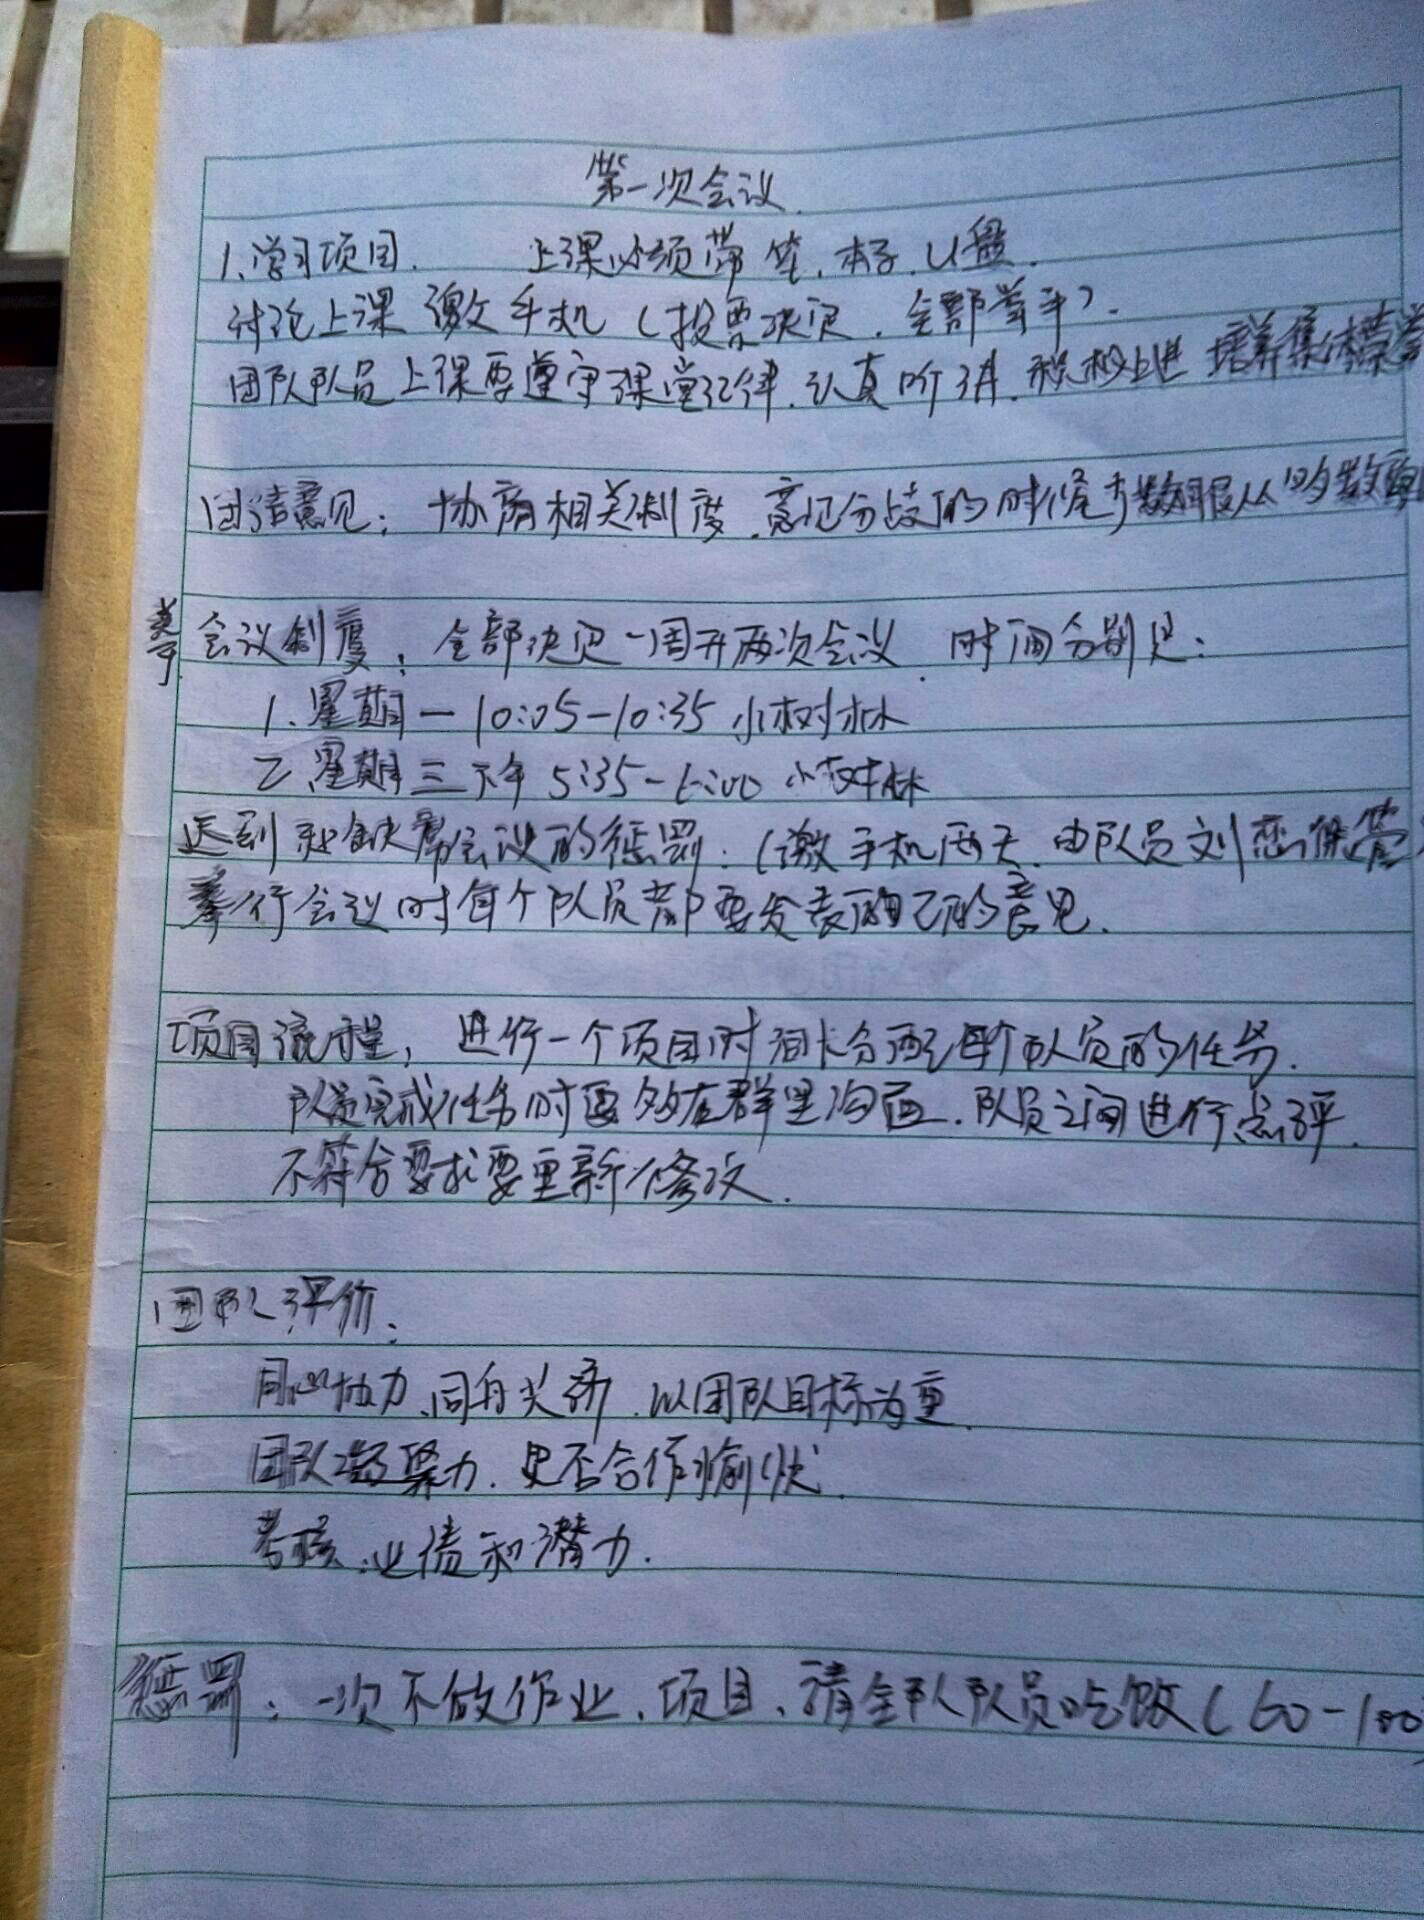 第一次会议.
1.学习项目. 上课必须带笔.本子.U盘.
讨论上课缴手机(投票决定.全部举手).
团队队员上课要遵守课堂纪律.认真听讲.积极上进 培养集体荣誉
团结意见: 协商相关制度.意见分歧的时候少数服从多数
会议制度: 全部决定一周开两次会议.时间分别是:
1.星期一 10:05-10:35 小树林
2.星期三下午 5:35-6:00 小树林
迟到和缺席会议的惩罚.(缴手机两天.由队员刘恋保管
举行会议时每个队员都要发表自己的意见.
项目流程: 进行一个项目时 组长分配每个队员的任务.
队员完成任务时要多在群里沟通.队员之间进行点评.
不符合要求要重新修改.
团队评价:
同心协力、同舟共济.以团队目标为重.
团队凝聚力.是否合作愉快.
考核:业绩和潜力.
惩罚:一次不做作业、项目、请全队队员吃饭(60-100)